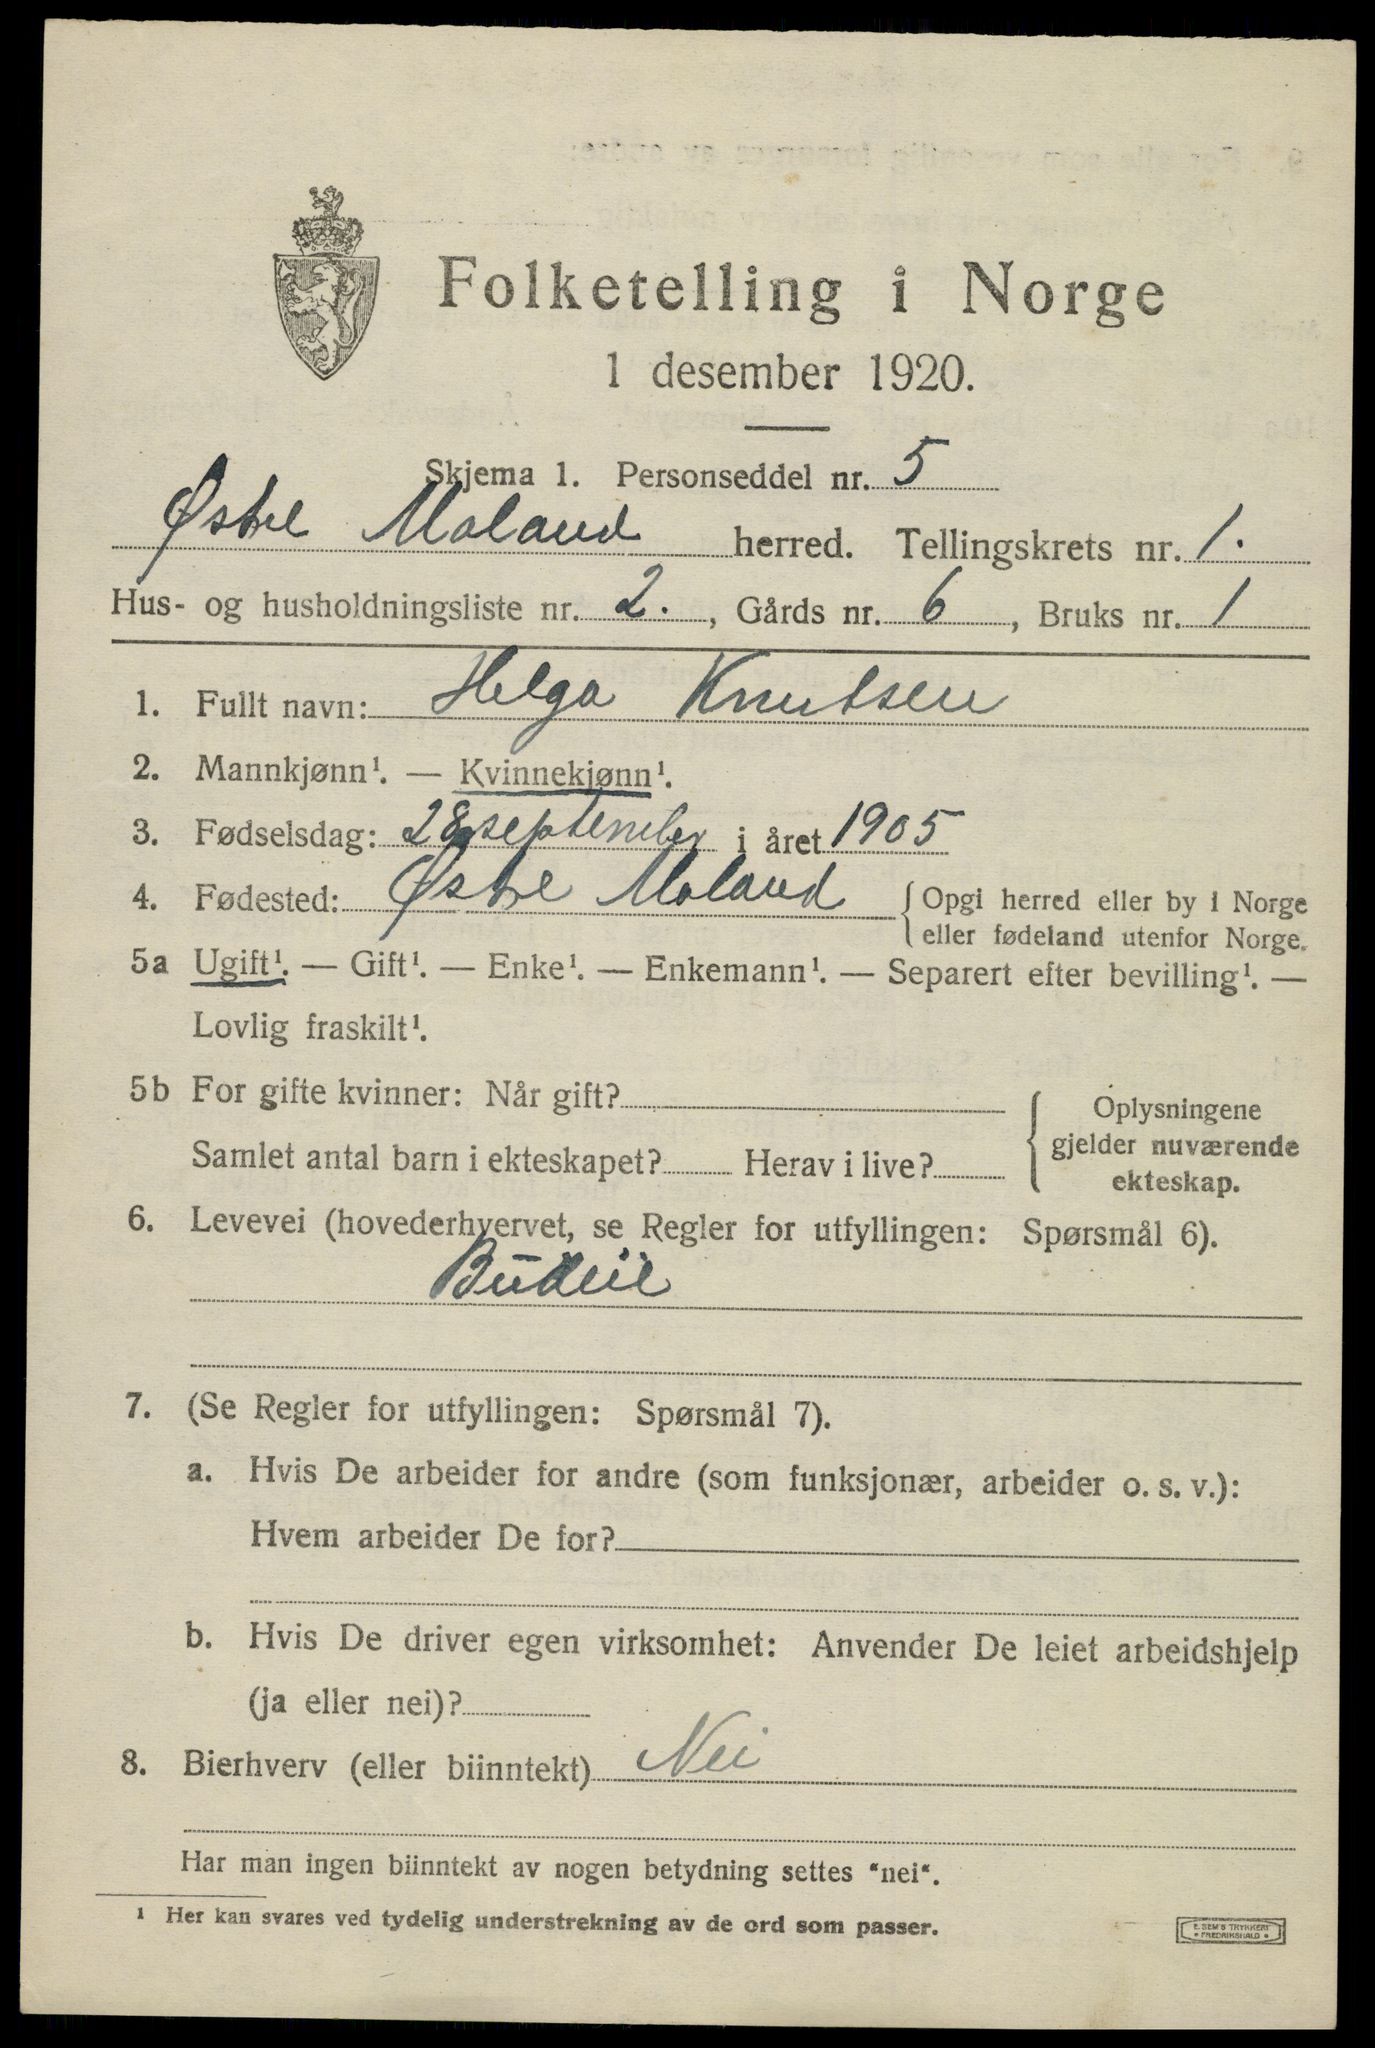 Folketelling i Norge
1 desember 1920.
Skjema 1. Personseddel nr. 5
Østre Moland herred. Tellingskrets nr. 1.
Hus- og husholdningsliste nr. 2. , Gårds nr. 6 , Bruks nr. 1
1. Fullt navn: Helga Knutsen
2. Mannkjønn¹. — Kvinnekjønn¹.
3. Fødselsdag: 28 september i året 1905
4. Fødested: Østre Moland { Opgi herred eller by i Norge
eller fødeland utenfor Norge.
5a Ugift¹. — Gift¹. — Enke¹. — Enkemann¹. — Separert efter bevilling¹. —
Lovlig fraskilt¹.
5b For gifte kvinner: Når gift?
Samlet antal barn i ekteskapet? Herav i live?
{ Oplysningene
gjelder nuværende
ekteskap.
6. Levevei (hovederhvervet, se Regler for utfyllingen: Spørsmål 6).
Budeie
7. (Se Regler for utfyllingen: Spørsmål 7).
a. Hvis De arbeider for andre (som funksjonær, arbeider o. s. v.):
Hvem arbeider De for?
b. Hvis De driver egen virksomhet: Anvender De leiet arbeidshjelp
(ja eller nei)?
8. Bierhverv (eller biinntekt) Nei
Har man ingen biinntekt av nogen betydning settes "nei".
¹ Her kan svares ved tydelig understrekning av de ord som passer.
E. SEM'S TRYKKERI
• FREDRIKSHALD •